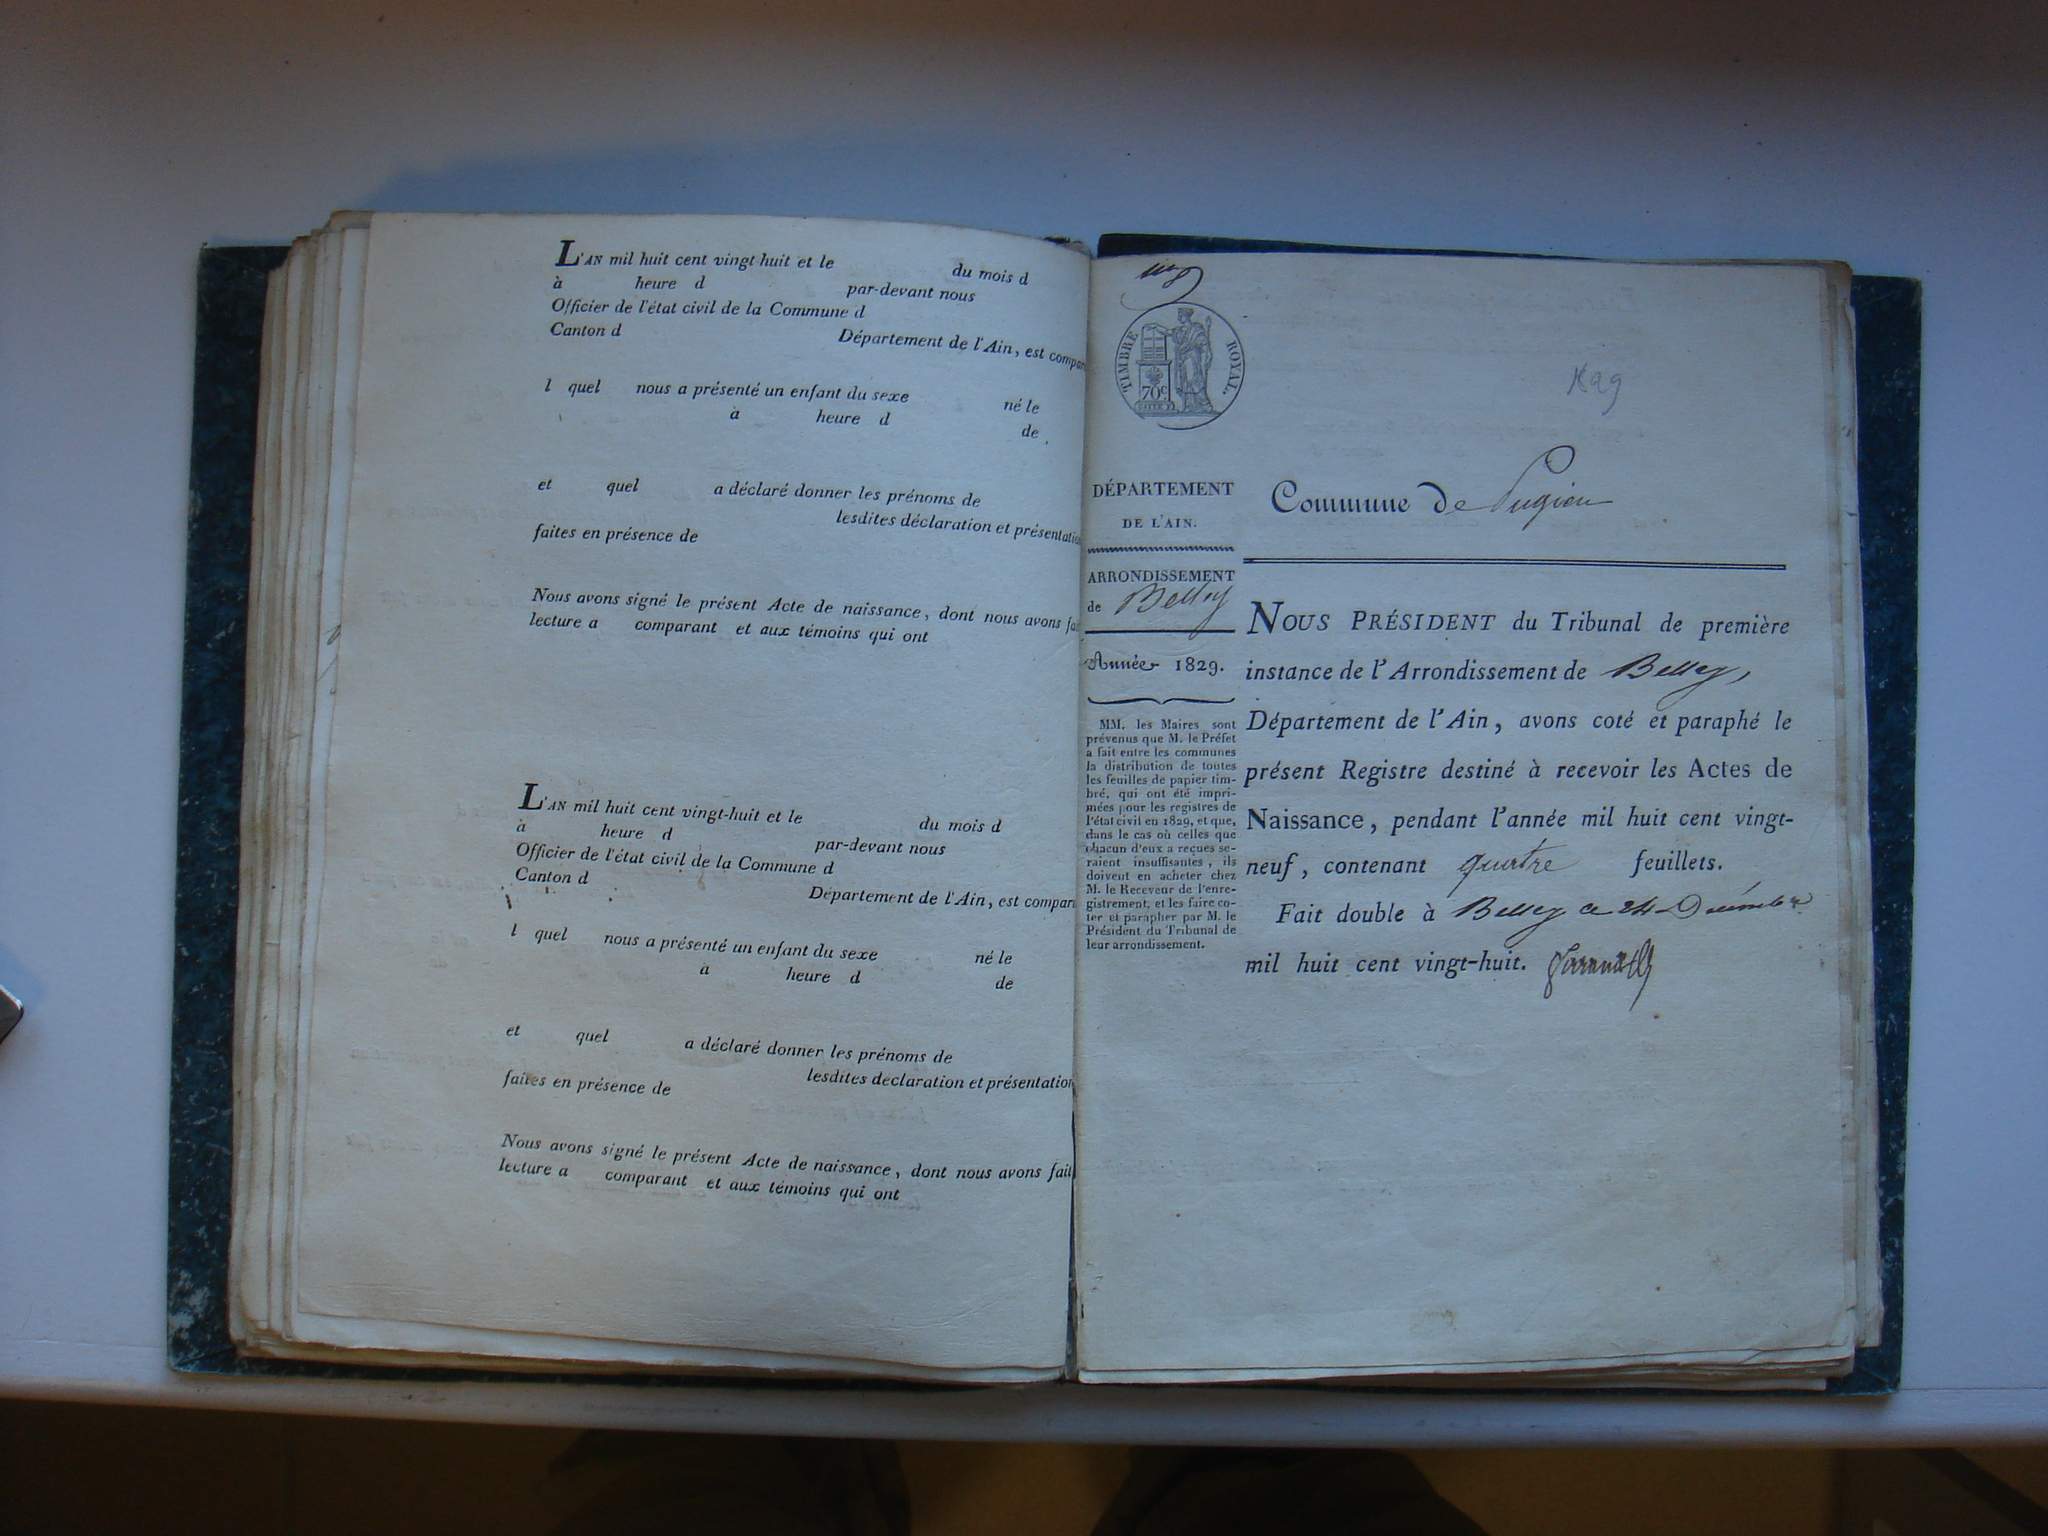 L'AN mil huit cent vingt-huit et le du mois d
à heure d par-devant nous
Officier de l'état civil de la Commune d
Canton d Département de l'Ain, est compar
l quel nous a présenté un enfant du sexe né le
à heure d de
et quel a déclaré donner les prénoms de
lesdites déclaration et présentatio
faites en présence de
Nous avons signé le présent Acte de naissance, dont nous avons fai
lecture a comparant et aux témoins qui ont
L'AN mil huit cent vingt-huit et le du mois d
à heure d par-devant nous
Officier de l'état civil de la Commune d
Canton d Département de l'Ain, est compar
l quel nous a présenté un enfant du sexe né le
à heure d de
et quel a déclaré donner les prénoms de
lesdites déclaration et présentation
faites en présence de
Nous avons signé le présent Acte de naissance, dont nous avons fait
lecture a comparant et aux témoins qui ont
TIMBRE ROYAL.
70c
DÉPARTEMENT
DE L'AIN.
ARRONDISSEMENT
de Belley
Année 1829.
MM. les Maires sont
prévenus que M. le Préfet
a fait entre les communes
la distribution de toutes
les feuilles de papier tim-
bré, qui ont été impri-
mées pour les registres de
l'état civil en 1829, et que,
dans le cas où celles que
chacun d'eux a reçues se-
raient insuffisantes, ils
doivent en acheter chez
M. le Receveur de l'enre-
gistrement, et les faire co-
ter et parapher par M. le
Président du Tribunal de
leur arrondissement.
1829
Commune de Pugieu
NOUS PRÉSIDENT du Tribunal de première
instance de l'Arrondissement de Belley,
Département de l'Ain, avons coté et paraphé le
présent Registre destiné à recevoir les Actes de
Naissance, pendant l'année mil huit cent vingt-
neuf, contenant quatre feuillets.
Fait double à Belley ce 24 Décembre
mil huit cent vingt-huit.